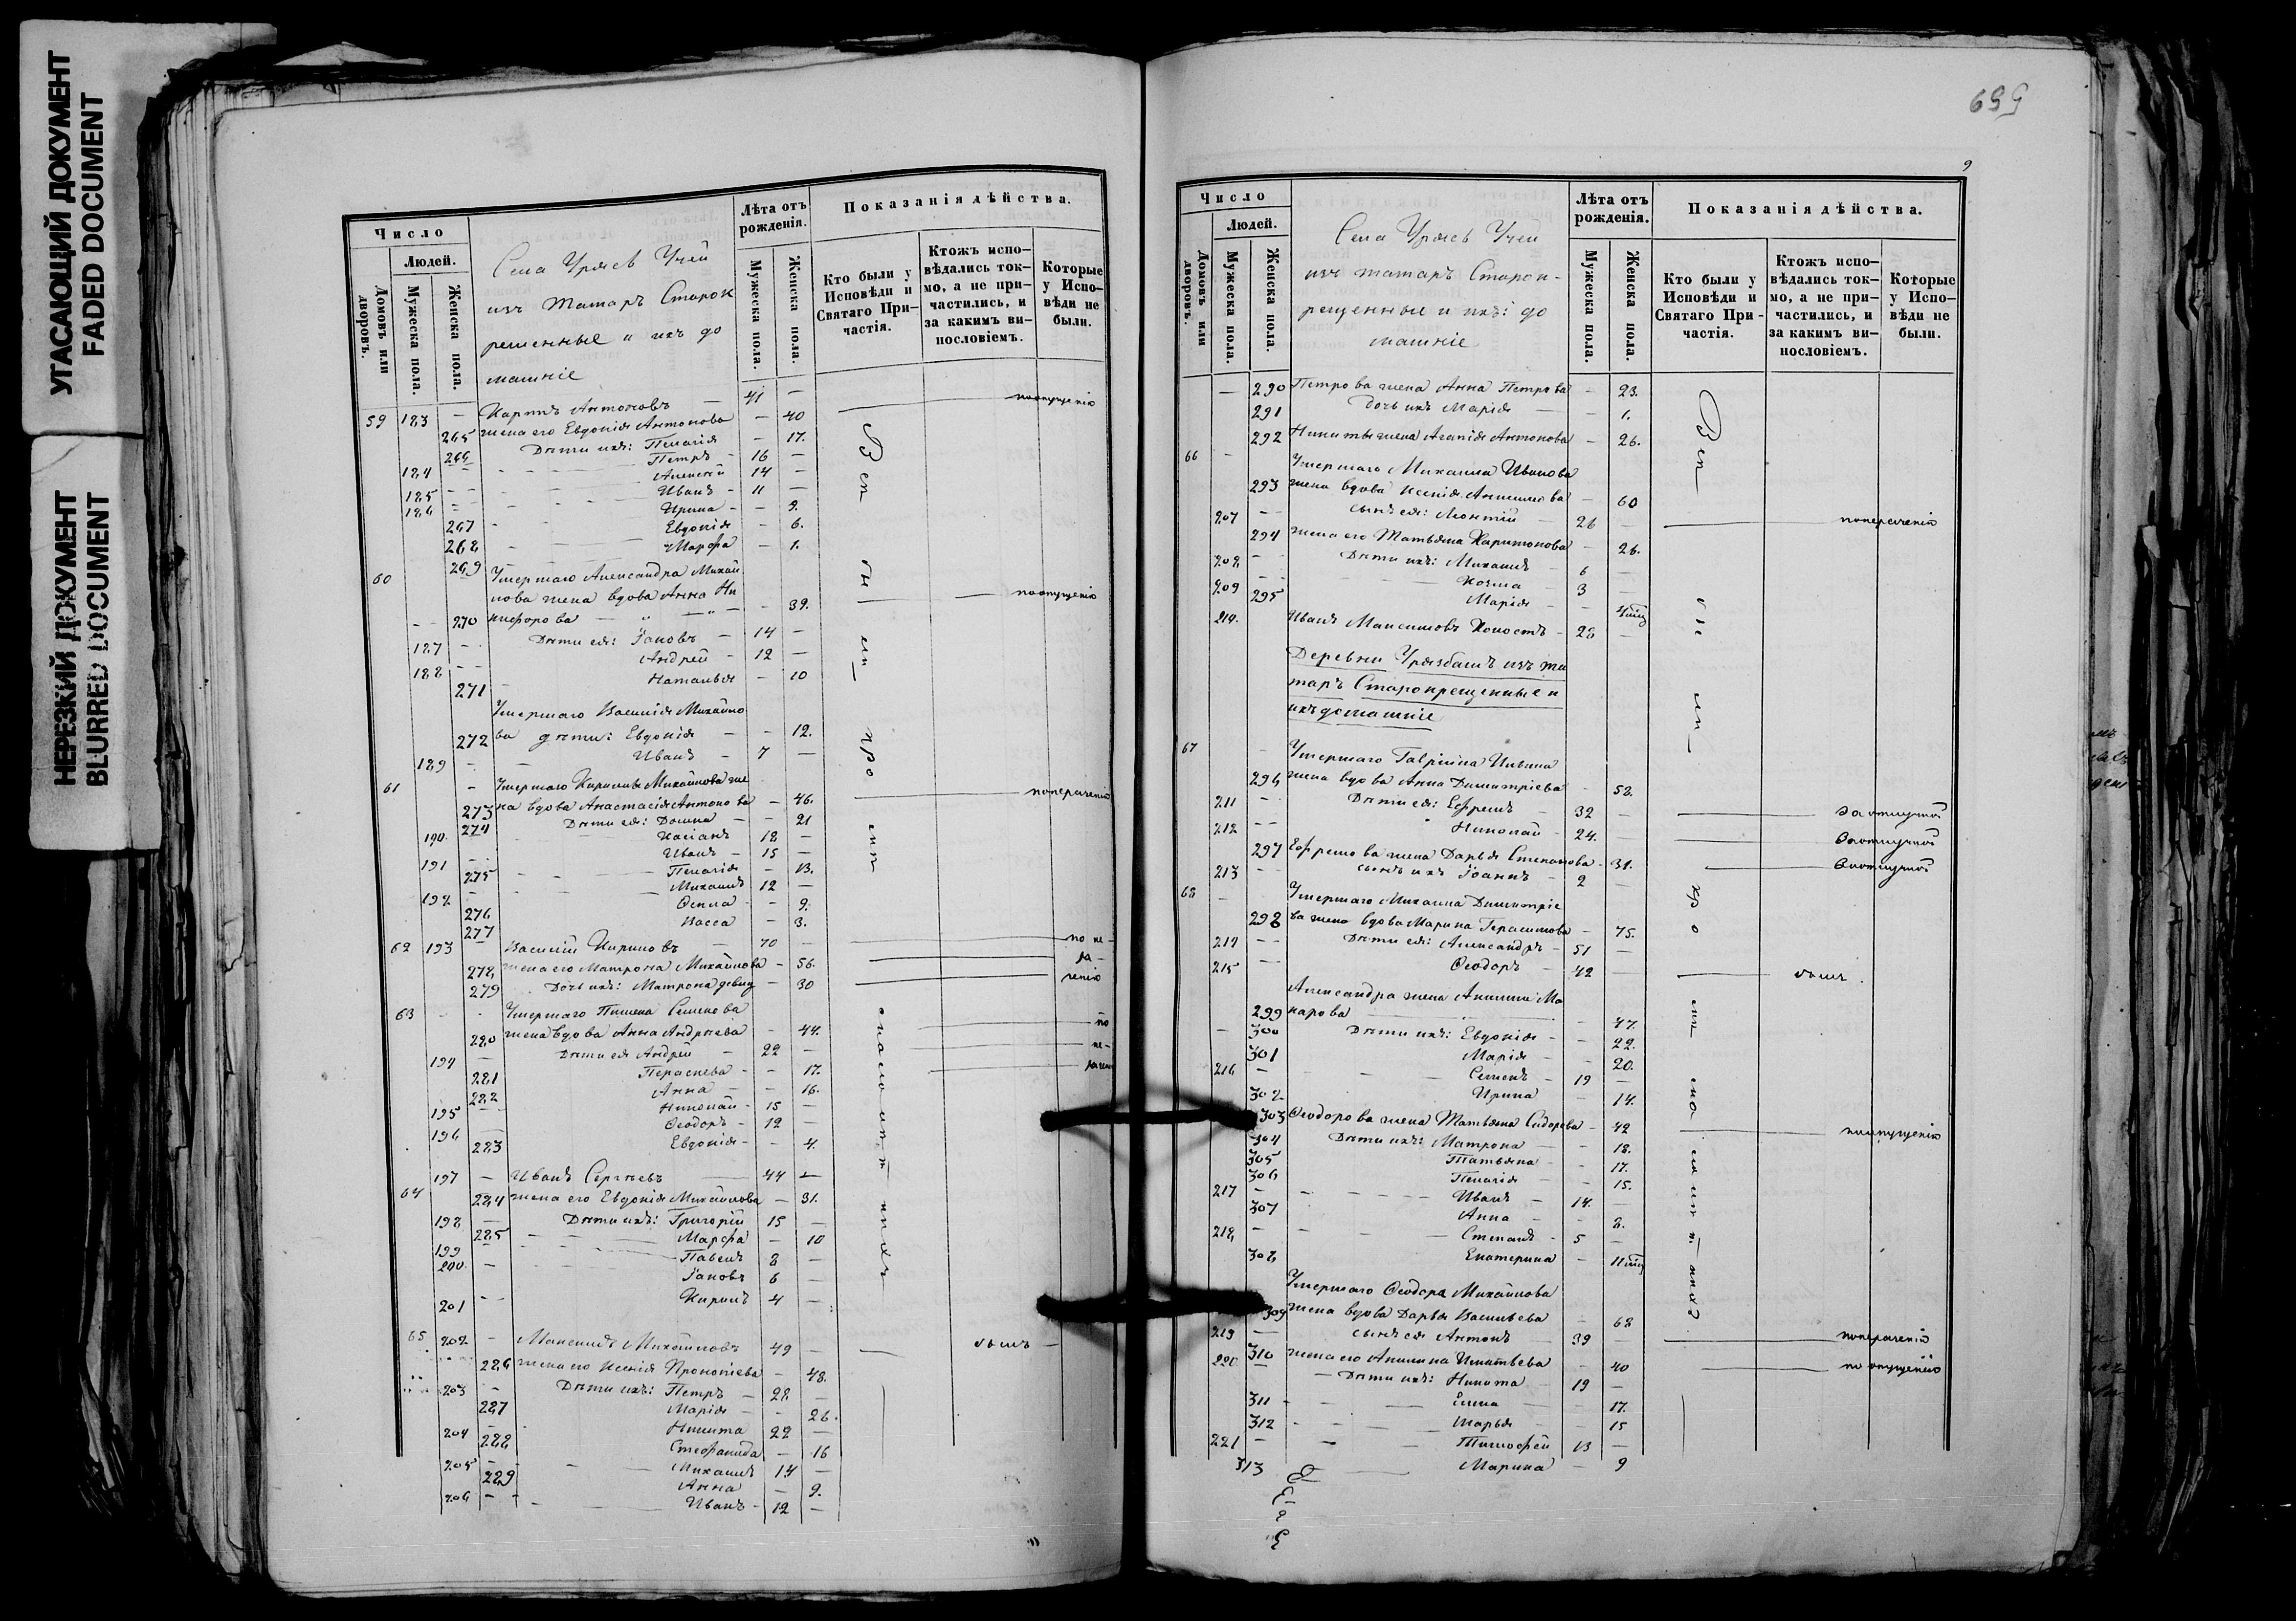 УГАСАЮЩИЙ ДОКУМЕНТ
FADED DOCUMENT
НЕРЕЗКИЙ ДОКУМЕНТ
BLURRED DOCUMENT
Число
Людей.
Домовъ или дворовъ.
Мужеска пола.
Женска пола.
Села Урясь Учей
изъ татаръ Старок
рещенные и ихъ до
машніе
Лѣта отъ рожденія.
Мужеска пола.
Женска пола.
Показанія дѣйства.
Кто были у Исповѣди и Святаго При-частія.
Ктожъ испо-вѣдались ток-мо, а не при-частились, и за какимъ ви-нословіемъ.
Которые у Испо-вѣди не были.
59 183 — Карпъ Антоновъ — 41 — по опущенію
265 жена его Евдокія Антонова — 40
266 Дѣти ихъ: Пелагія — 17.
184 Петръ — 16 —
185 Алексѣй 14 —
186 Иванъ — 11 —
267 Ирина — 9.
268 Евдокія — 6.
269 Марфа — 1.
60 Умершаго Александра Михай
лова жена вдова Анна Ни
270 кифорова — 39. по опущенію
187 Дѣти ея: Іаковъ — 14 —
188 Андрей — 12 —
271 Наталья — 10
Умершаго Василія Михайло
272 ва дѣти: Евдокія — 12.
189 Иванъ — 7 —
61 Умершаго Кирилы Михайлова же
273 на вдова Анастасія Антонова — 46. по нераченію
274 Дѣти ея: Домна — 21
190 Касіанъ 18 —
191 Иванъ — 15 —
275 Пелагія — 13.
192 Михаилъ 12 —
276 Фекла — 9.
277 Васса — 3.
62 193 Василій Кириловъ — 70 — по не-
278 жена его Матрона Михайлова — 56. ра-
279 Дочь ихъ: Матрона девиц — 30 ченію
63 Умершаго Пимена Семенова
280 жена вдова Анна Андреева — 44. по
194 Дѣти ея Андрей — 22 — не-
281 Параскева — 17.
282 Анна — 16.
195 Николай — 15 —
196 Ѳеодоръ — 12 —
283 Евдокія — 4.
64 197 — Иванъ Сергѣевъ — 44 —
284 жена его Евдокія Михайлова — 31.
198 Дѣти ихъ: Григорій 15 —
285 Марфа — 10
199 Павелъ 8 —
200 Іаковъ 6 —
201 Кирилъ 4 —
65 202 — Максимъ Михайловъ 49 —
286 жена его Ксенія Прокопіева — 48.
203 Дѣти ихъ: Петръ — 28 —
287 Марія — 26.
204 Никита 22 —
288 Стефанида — 16
205 Михаилъ 14 —
289 Анна — 9.
206 Иванъ — 12 —
559
9
Число
Людей.
Домовъ или дворовъ.
Мужеска пола.
Женска пола.
Села Урясь Учей
изъ татаръ Старок-
рещенные и ихъ: до
машніе
Лѣта отъ рожденія.
Мужеска пола.
Женска пола.
Показанія дѣйства.
Кто были у Исповѣди и Святаго При-частія.
Ктожъ испо-вѣдались ток-мо, а не при-частились, и за какимъ ви-нословіемъ.
Которые у Испо-вѣди не были.
290 Петрова жена Анна Петрова — 23.
291 дочь ихъ Марія — 1.
292 Никиты жена Агапія Антонова — 26.
66 Умершаго Михаила Иванова
293 жена вдова Ксенія Анисимова — 60
207 сынъ ея: Леонтій — 26 — по нераченію
294 жена его Татьяна Харитонова — 26.
208 Дѣти ихъ: Михаилъ — 6 —
209 Козма — 3 —
295 Марія —
210 Иванъ Максимовъ Холостъ — 28 —
Деревни Урязбашъ изъ та
таръ Старокрещенные и
ихъ домашніе
67 Умершаго Гавріила Ильина
296 жена вдова Анна Димитріева — 58.
211 Дѣти ея: Ефремъ — 32 — За отлучкой
212 Николай — 24. — За отлучкой
297 Ефремова жена Дарья Степанова — 31. За отлучкой
213 сынъ ихъ Іоаннъ — 2 —
68 Умершаго Михаила Димитріе
298 ва жена вдова Марина Герасимова — 75.
214 Дѣти ея: Александръ — 51 —
215 Ѳеодоръ — 42 —
Александра жена Акилина Ма
299 карова — 47.
300 Дѣти ихъ: Евдокія — 22.
301 Марія — 20.
216 Семенъ — 19 —
302 Ирина — 14.
303 Ѳеодорова жена Татьяна Сидорова — 42 по опущенію
304 Дѣти ихъ: Матрона — 18.
305 Татьяна — 17.
306 Пелагія — 15.
217 Иванъ — 14. —
307 Анна — 8.
218 Степанъ — 5 —
308 Екатерина —
Умершаго Ѳеодора Михайлова
309 жена вдова Дарья Васильева — 68
219 сынъ ея Антонъ — 39 — по нераченію
310 жена его Акилина Игнатьева — 40 по опущенію
220 Дѣти ихъ: Никита — 19 —
311 Елена — 17.
312 Марья — 15
221 Тимофей 13 —
313 Марина — 9